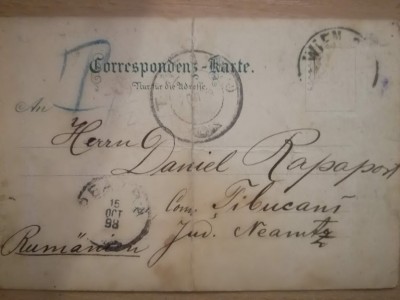 WIEN
Correspondenz-Karte.
Nur für die Adresse.
An
Herrn
Daniel Rapaport
Com. Tibucani
Jud. Neamtz
Rumänien
16
OCT
98